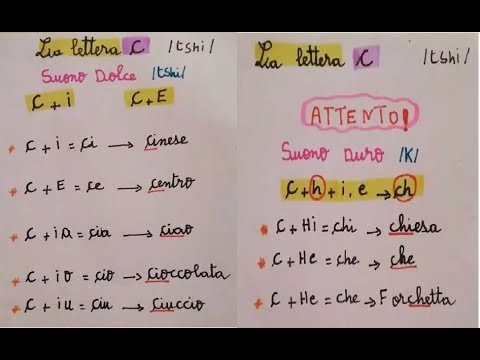 La lettera C /tshi/
Suono Dolce /tshi/
C + i C + E
* C + i = Ci → cinese
* C + E = ce → centro
* C + ia = cia → ciao
* C + io = cio → cioccolata
* C + iu = ciu → ciuccio
La lettera C /tshi/
ATTENTO!
Suono Duro /K/
C + h + i, e → ch
* C + Hi = chi → chiesa
* C + He = che → che
* C + He = che → Forchetta